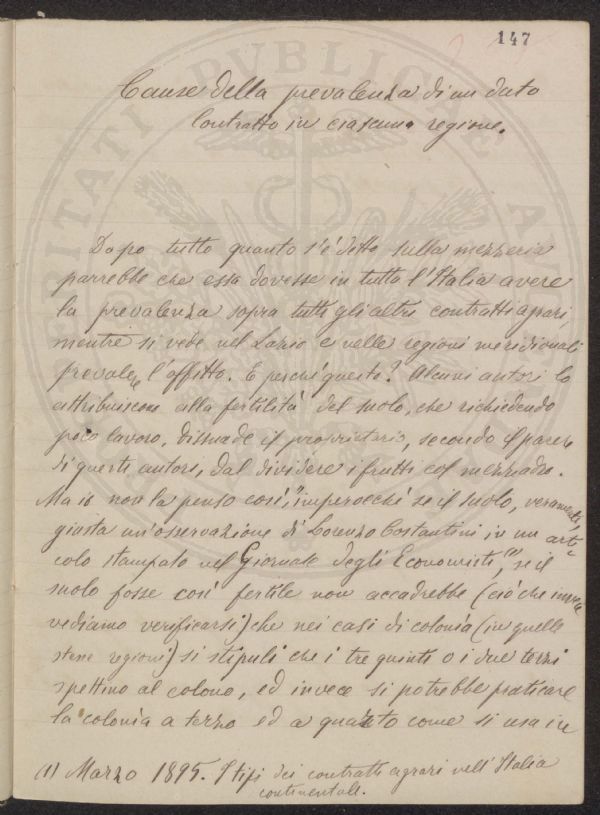 147
Cause della prevalenza di un dato
Contratto in ciascuna regione.
Dopo tutto quanto s'è detto sulla mezzeria
parrebbe che essa dovesse in tutta l'Italia avere
la prevalenza sopra tutti gli altri contratti agrari,
mentre si vede nel Lazio e nelle regioni meridionali
prevalere l'affitto. E perché questo? Alcuni autori lo
attribuiscono alla fertilità del suolo, che richiedendo
poco lavoro, dissuade il proprietario, secondo il parere
di questi autori, dal dividere i frutti col mezzadro.
Ma io non la penso così, imperocché se il suolo, veramente,
giusta un'osservazione di Lorenzo Costantini in un arti-
colo stampato nel Giornale degli Economisti, (1) se il
suolo fosse così fertile non accadrebbe (ciò che invece
vediamo verificarsi) che nei casi di colonìa (in quelle
stesse regioni) si stipuli che i tre quinti o i due terzi
spettino al colono, ed invece si potrebbe praticare
la colonìa a terzo ed a quarto come si usa in
(1) Marzo 1895. I tipi dei contratti agrari nell'Italia
continentale.